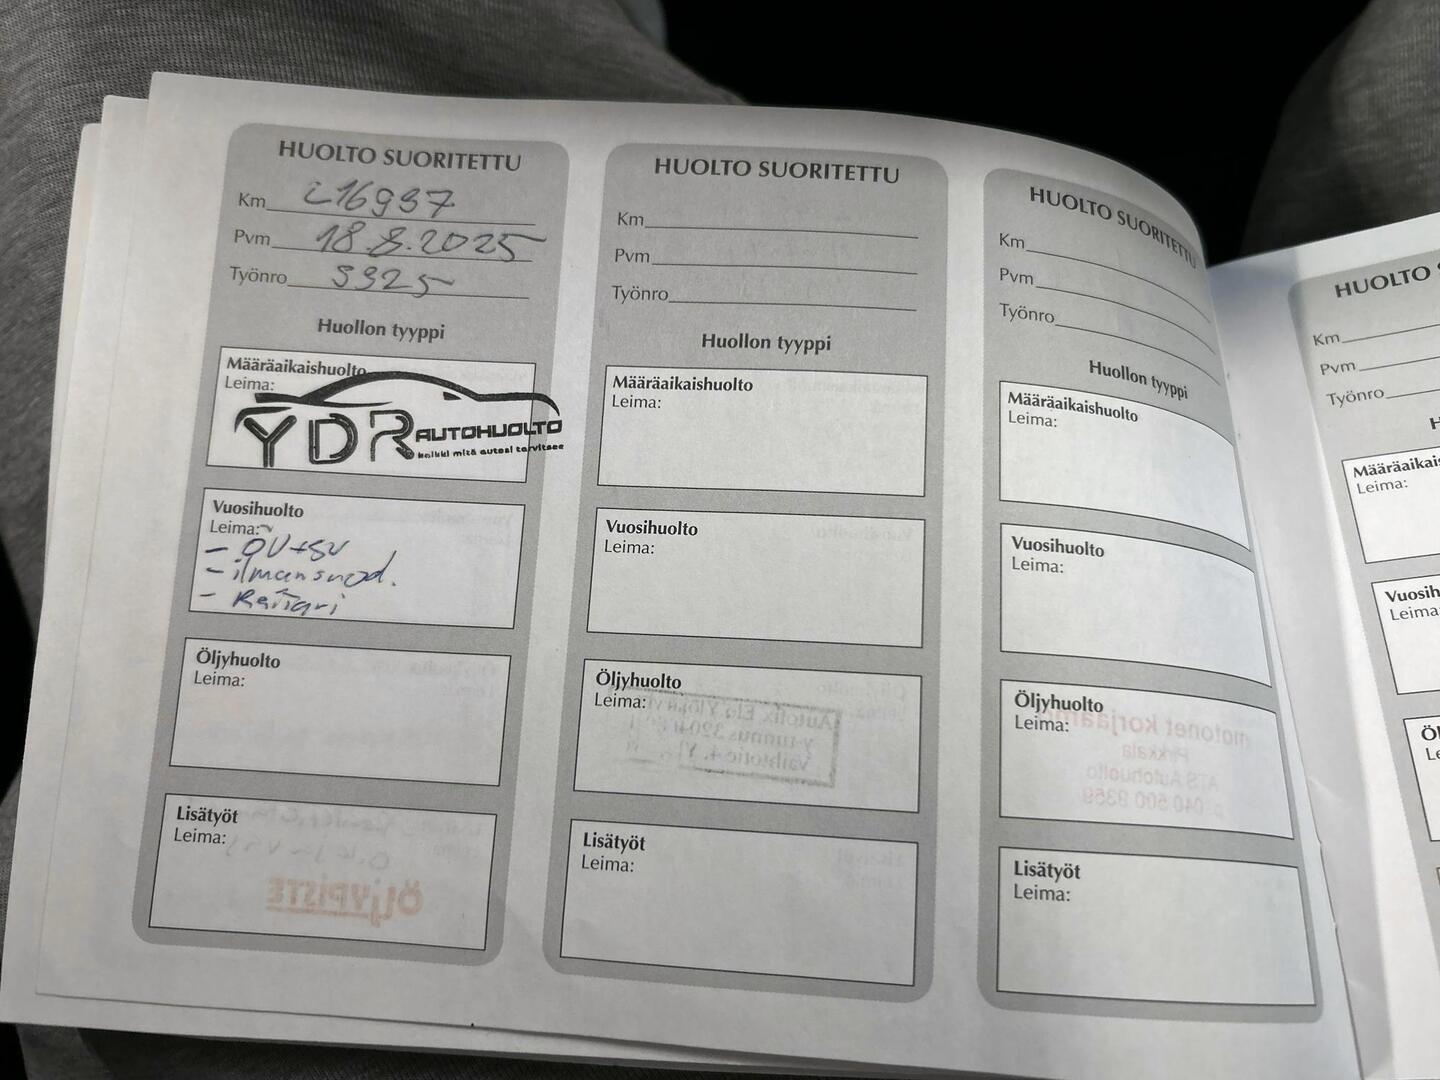 HUOLTO SUORITETTU
Km 216937
Pvm 18.8.2025
Työnro 3325
Huollon tyyppi
Määräaikaishuolto
Leima:
YDR AUTOHUOLTO
kaikki mitä autosi tarvitsee
Vuosihuolto
Leima:
- ÖV+SV
- ilmansuod.
- Raitari
Öljyhuolto
Leima:
Lisätyöt
Leima:
ÖLJYPISTE
HUOLTO SUORITETTU
Km
Pvm
Työnro
Huollon tyyppi
Määräaikaishuolto
Leima:
Vuosihuolto
Leima:
Öljyhuolto
Leima:
Lisätyöt
Leima:
HUOLTO SUORITETTU
Km
Pvm
Työnro
Huollon tyyppi
Määräaikaishuolto
Leima:
Vuosihuolto
Leima:
Öljyhuolto
Leima:
motonet korjaamo
Pirkkala
ATS Autohuolto
p. 040 500 8359
Lisätyöt
Leima:
HUOLTO
Km
Pvm
Työnro
Leima:
Leima: